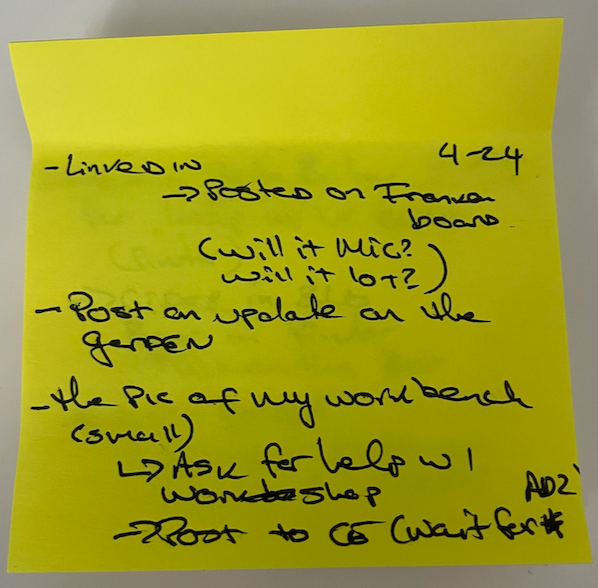 4-24
- LinkedIn
→ Posted on Franken
board
(will it Mic?
will it IoT?)
- Post an update on the
garden
- the pic of my workbench
(small)
↳ Ask for help w/
workshop
→ Post to CE (wait for